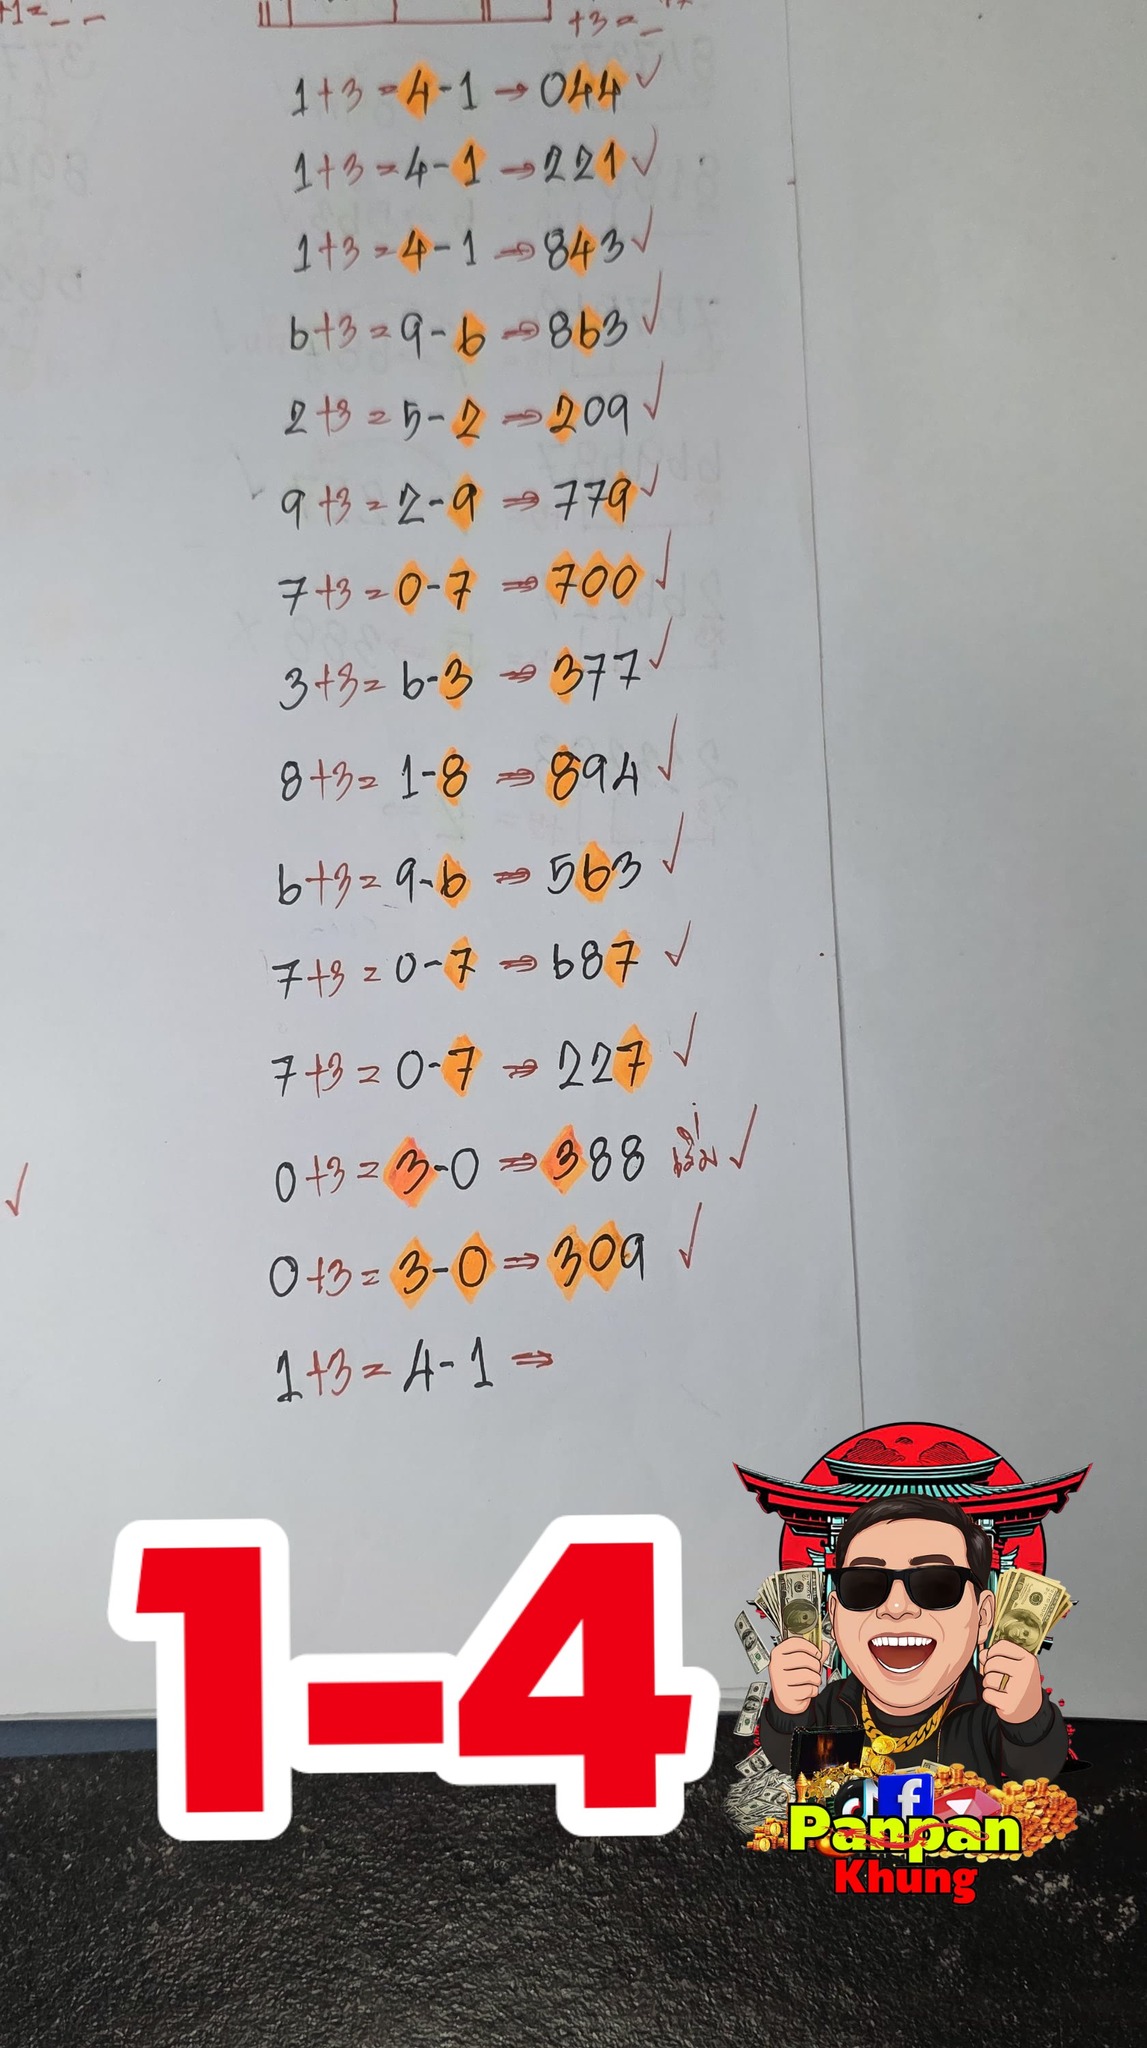 +1=_ _
+3=_
1+3=4-1→044✓
1+3=4-1→221✓
1+3=4-1→843✓
6+3=9-6→863✓
2+3=5-2⇒209✓
9+3=2-9⇒779✓
7+3=0-7⇒700✓
3+3=6-3⇒377✓
8+3=1-8⇒894✓
6+3=9-6⇒563✓
7+3=0-7⇒687✓
7+3=0-7⇒227✓
0+3=3-0⇒388 เริ่ม✓
0+3=3-0⇒309✓
1+3=4-1⇒
1-4
Panpan
Khung